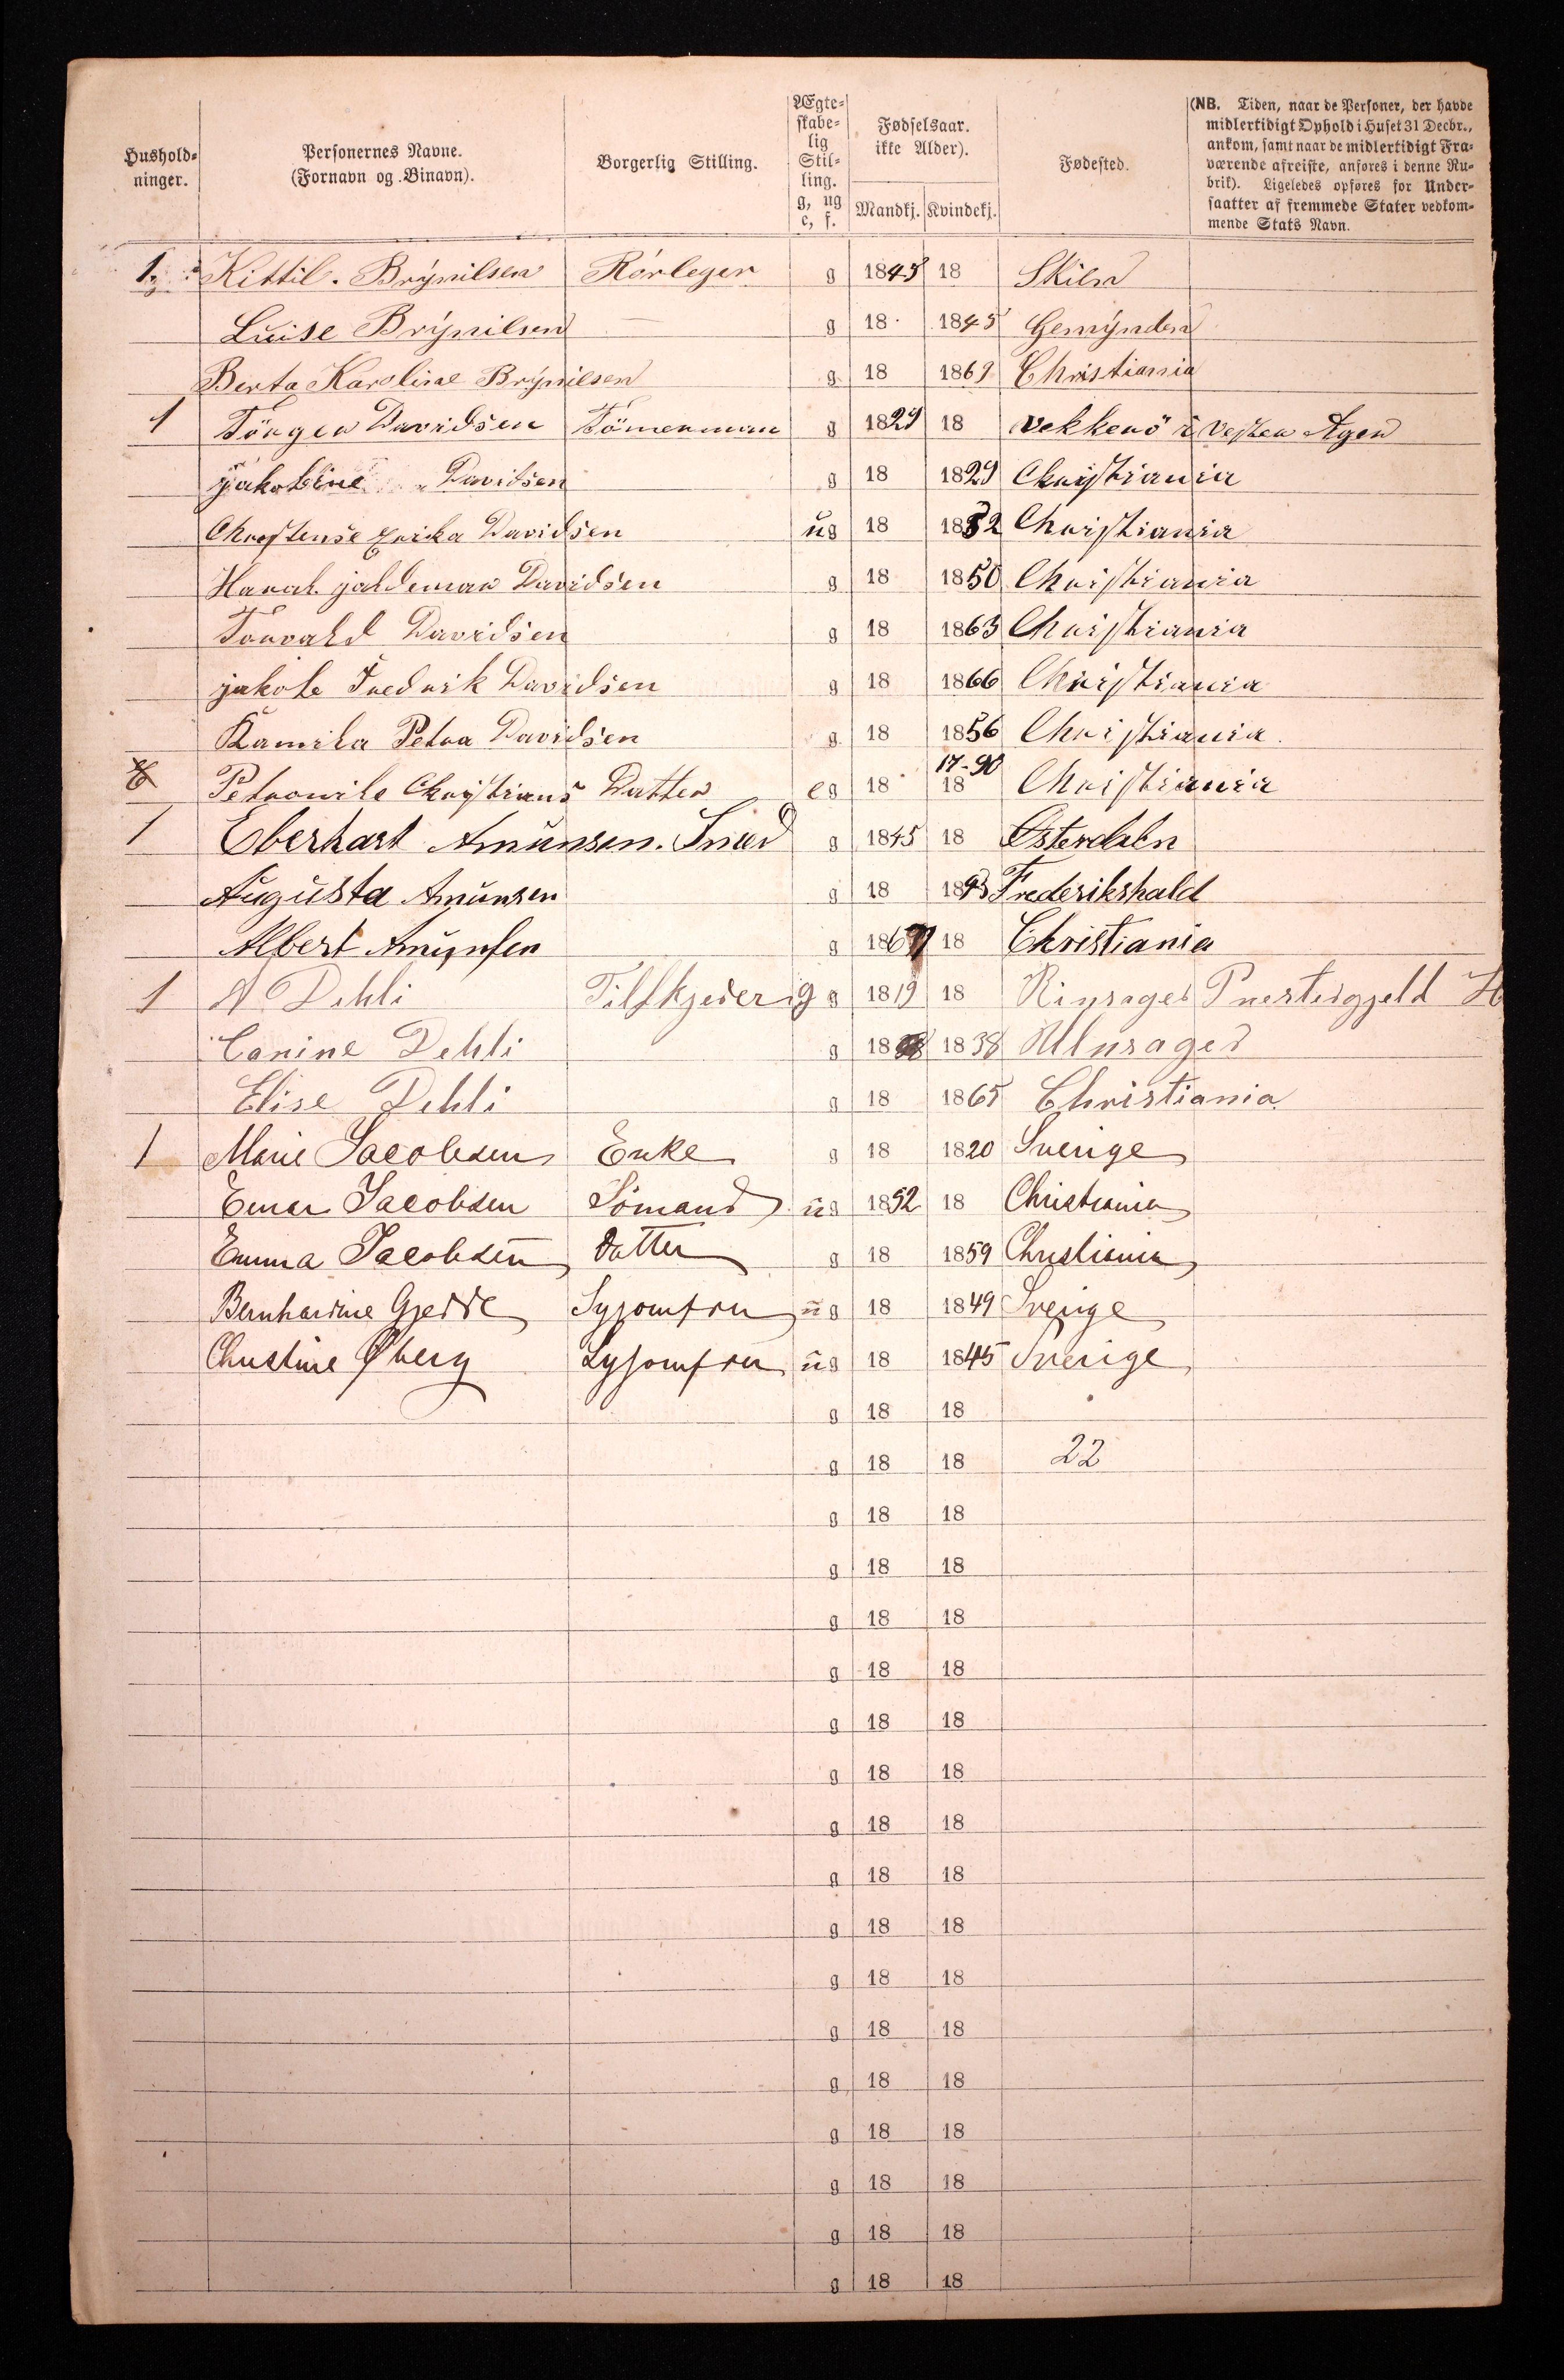 Hushold-
ninger.
Personernes Navne.
(Fornavn og Binavn).
Borgerlig Stilling.
Ægte-
skabe-
lig
Stil-
ling.
g, ug
e, f.
Fødselsaar.
ikke Alder).
Mandkj. Kvindekj.
Fødested.
(NB. Tiden, naar de Personer, der havde
midlertidigt Ophold i Huset 31 Decbr.,
ankom, samt naar de midlertidigt Fra-
værende afreiste, anføres i denne Ru-
brik). Ligeledes opføres for Under-
saatter af fremmede Stater vedkom-
mende Stats Navn.
1 Kittil. Brynilsen Rørleger g 1845 18 Skien
Luise Brynilsen — g 18 1845 Gemynden
Berta Karoline Brynilsen g 18 1869 Christiania
1 Törger Davidsen Tömerman g 1829 18 Vekkerö i Vester Agen
jakobine Davidsen g 18 1829 Christiania
Davidsen ug 18 1852 Christiania
Haral. Davidsen g 18 1850 Christiania
Torvald Davidsen g 18 1863 Christiania
jakob Fredrik Davidsen g 18 1866 Christiania
Kamila Petra Davidsen g 18 1856 Christiania.
Petronile Christians Datter eg 18 18 17-90 Christiania
1 Eberhart Amunsen. Smed g 1845 18 Østerdaln
Augusta Amunsen g 18 18 Frederikshald
Albert Amunsen g 18 18 Christiania
1 A Dehli Tilskjerer g g 1819 18 Rinsager Prestegjeld H
Canine Dehli g 18 1838 Ulnsager
Elise Dehli g 18 1865 Christiania
1 Marie Jacobsen Enke g 18 1820 Sverige
Einar Jacobsen Sömand ug 1852 18 Christiania
Emma Jacobsen Datter g 18 1859 Christiania
Bernhardine Gjedde Syjomfru ug 18 1849 Sverige
Christine Øberg Syjomfru ug 18 1845 Sverige
g 18 18
g 18 18 22
g 18 18
g 18 18
g 18 18
g 18 18
g 18 18
g 18 18
g 18 18
g 18 18
g 18 18
g 18 18
g 18 18
g 18 18
g 18 18
g 18 18
g 18 18
g 18 18